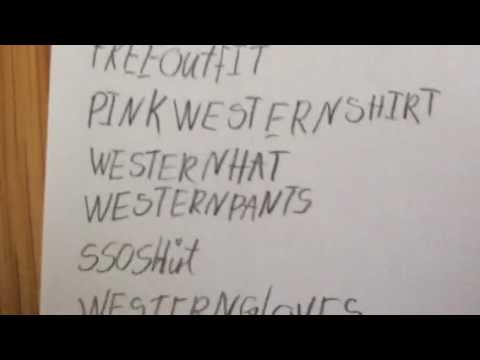 FREEOUTfIT
PINKWESTERNSHIRT
WESTERNHAT
WESTERNPANTS
SSOSHirt
WESTERNGlOVES